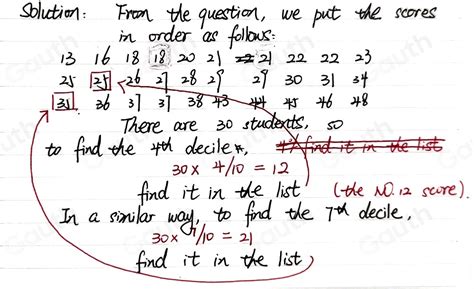 Solution: From the question, we put the scores
in order as follows:
13 16 18 18 20 21 22 21 22 22 23
25 25 26 27 28 27 29 30 31 34
35 36 37 37 38 43 44 45 46 48
There are 30 students, so
to find the 4th decile,
30 x 4/10 = 12
find it in the list (the NO.12 score).
In a similar way, to find the 7th decile,
30 x 7/10 = 21
find it in the list